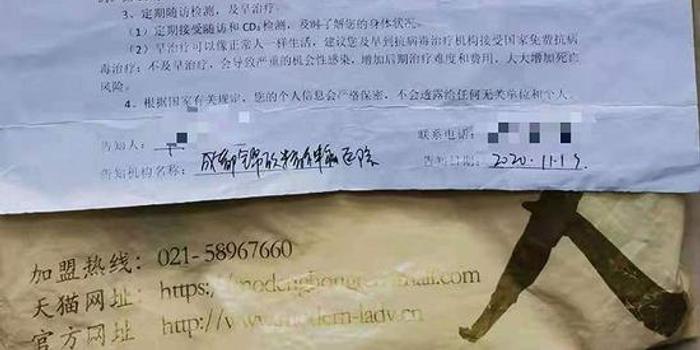 3、定期随访检测，及早治疗。
（1）定期接受随访和CD₄检测，及时了解您的身体状况。
（2）早治疗可以像正常人一样生活，建议您及早到抗病毒治疗机构接受国家免费抗病
毒治疗；不及早治疗，会导致严重的机会性感染，增加后期治疗难度和费用，大大增加死亡
风险。
4、根据国家有关规定，您的个人信息会严格保密，不会透露给任何无关单位和个人。
告知人： 联系电话：
告知机构名称：成都锦欣精神病医院 告知日期：2020.11.19
加盟热线：021-58967660
天猫网址：https://modenghongren.tmall.com
官方网址 http://www.modern-lady.cn